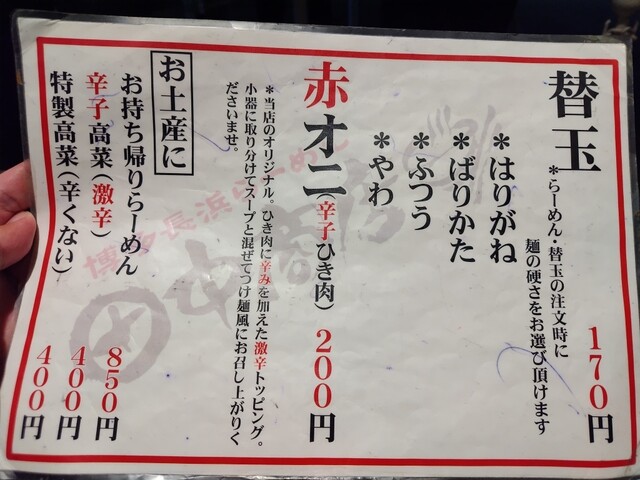 替玉 170円
*らーめん・替玉の注文時に
麺の硬さをお選び頂けます
*はりがね
*ばりかた
*ふつう
*やわ
赤オニ(辛子ひき肉) 200円
*当店のオリジナル。ひき肉に辛みを加えた激辛トッピング。
小器に取り分けてスープと混ぜてつけ麺風にお召し上がりく
ださいませ。
お土産に
お持ち帰りらーめん 850円
辛子高菜(激辛) 400円
特製高菜(辛くない) 400円
博多長浜らーめん
田中商店